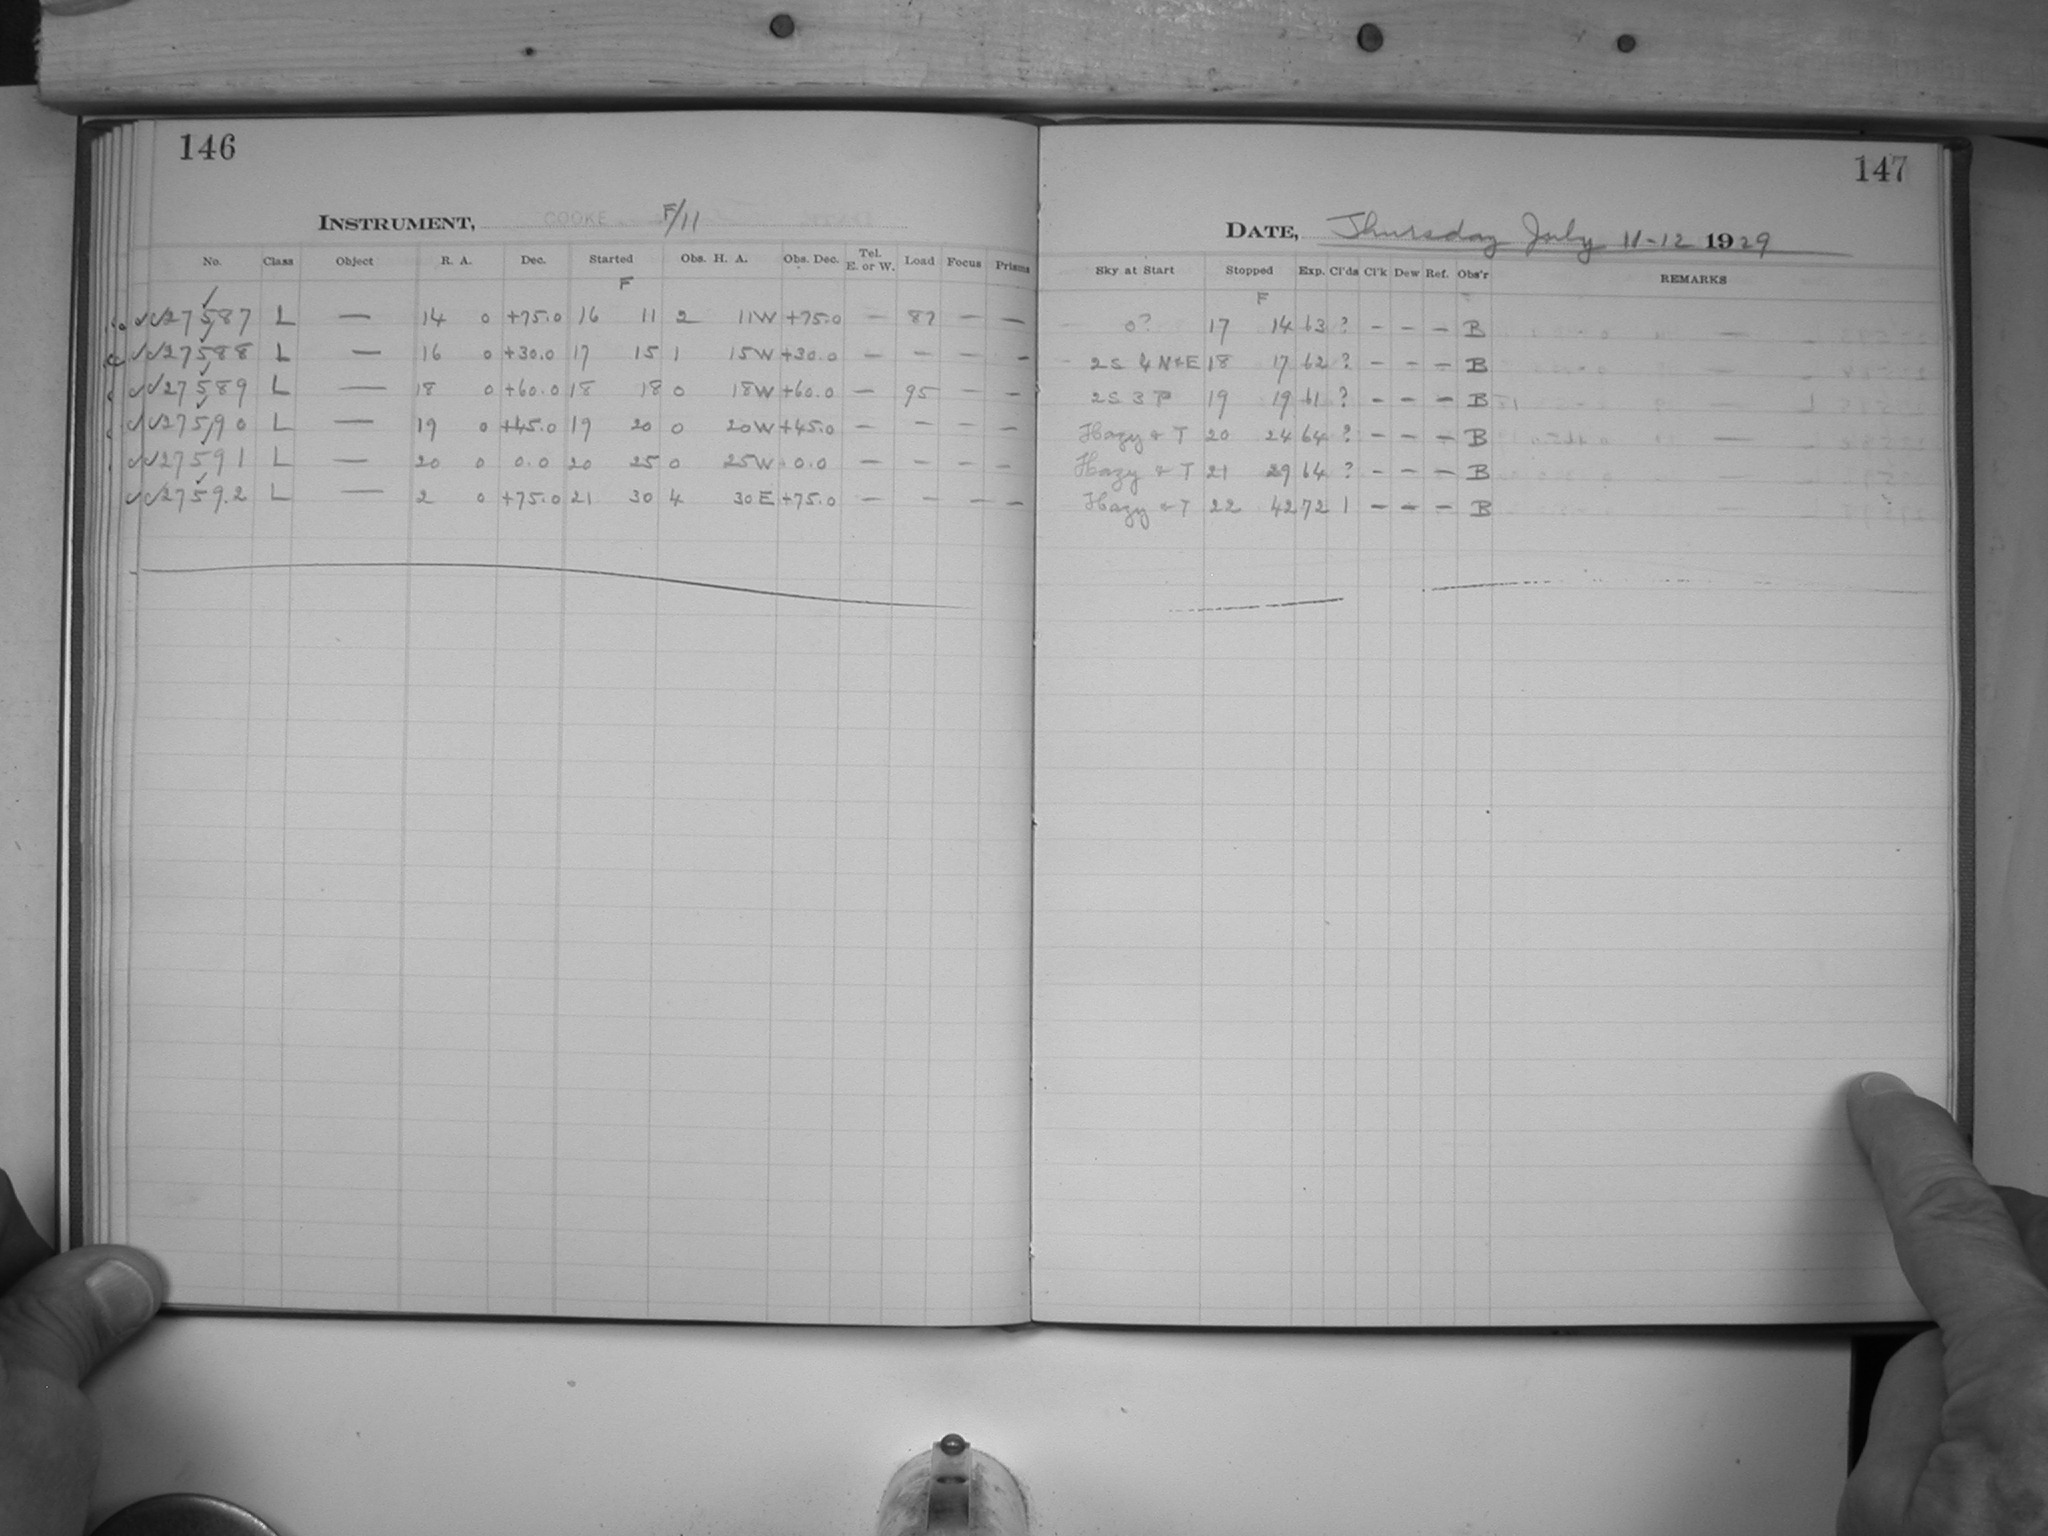 146
INSTRUMENT, COOKE F/11
No. Class Object R. A. Dec. Started Obs. H. A. Obs. Dec. Tel. E. or W. Load Focus Prisms
F
27587 L — 14 0 +75.0 16 11 2 11W +75.0 — 87 — —
27588 L — 16 0 +30.0 17 15 1 15W +30.0 — — — —
27589 L — 18 0 +60.0 18 18 0 18W +60.0 — 95 — —
27590 L — 19 0 +45.0 19 20 0 20W +45.0 — — — —
27591 L — 20 0 0.0 20 25 0 25W 0.0 — — — —
27592 L — 2 0 +75.0 21 30 4 30E +75.0 — — — —
147
DATE, Thursday July 11-12 1929
Sky at Start Stopped Exp. Cl'ds Cl'k Dew Ref. Obs'r REMARKS
F
0? 17 14 63 ? — — — B
2S 4 N+E 18 17 62 ? — — — B
2S 3 P 19 19 61 ? — — — B
Hazy + T 20 24 64 ? — — — B
Hazy + T 21 29 64 ? — — — B
Hazy + T 22 42 72 1 — — — B